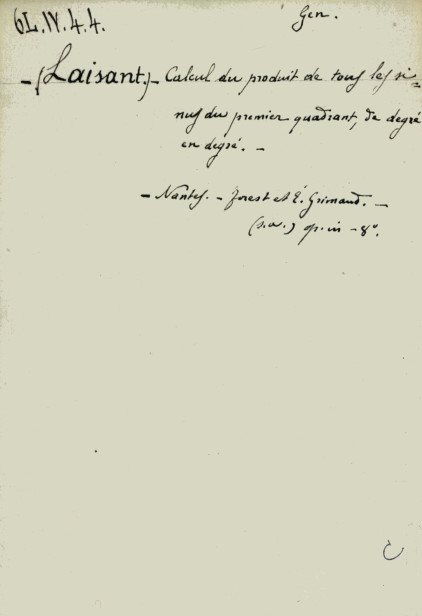 6L.IV.4.4.
Gen.
- (Laisant.) - Calcul du produit de tous les si=
nus du premier quadrant, de degré
en degré. -
- Nantes. - Forest et É. Grimaud. -
(s.a.) op. in - 8°.
C